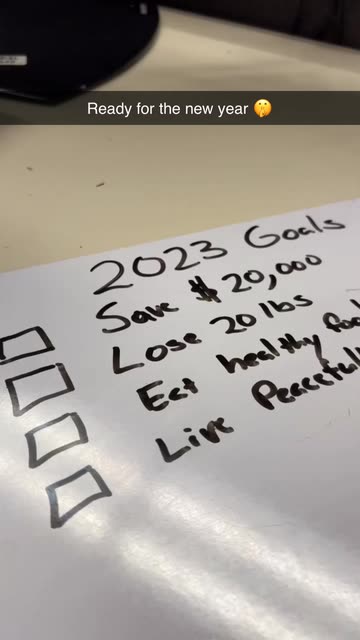 Ready for the new year 🤫
2023 Goals
Save $20,000
Lose 20 lbs
Eat healthy
Live